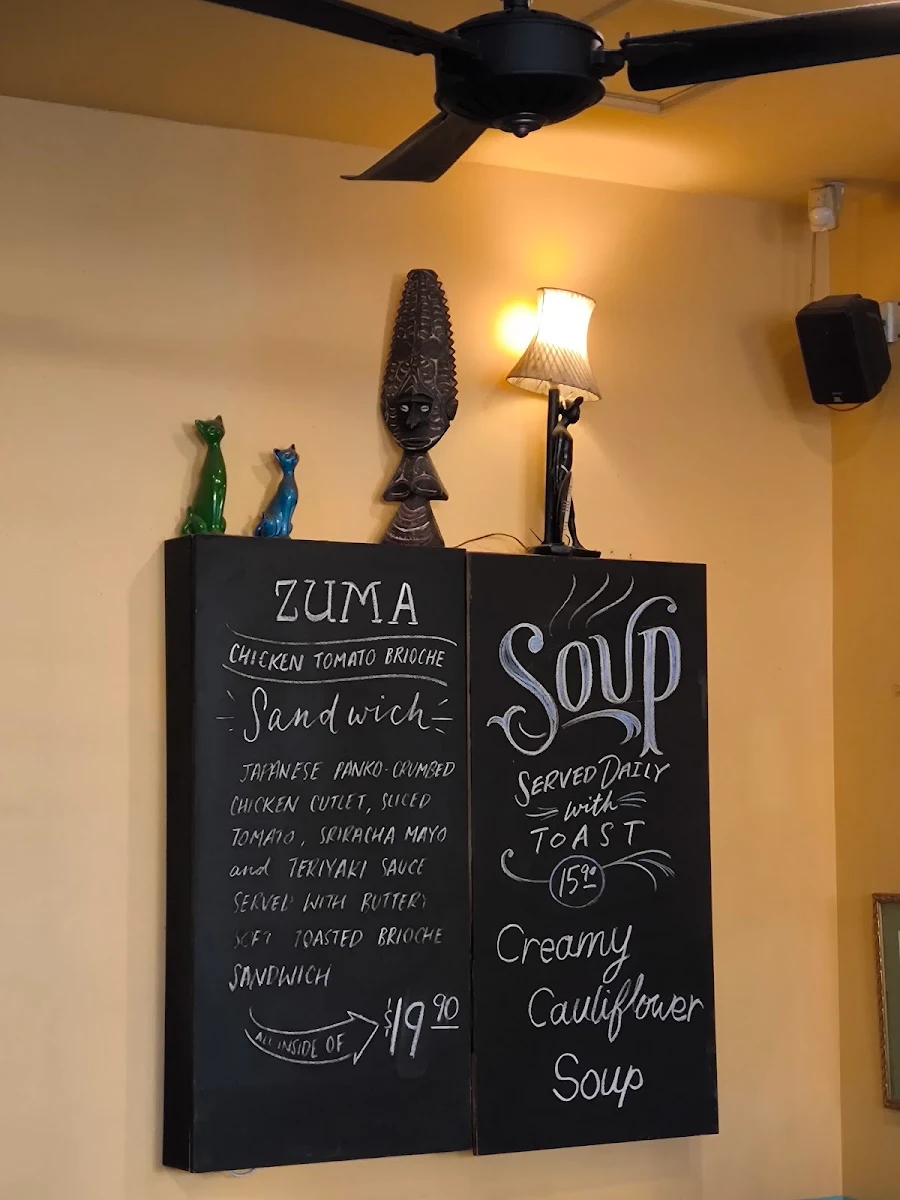 ZUMA
CHICKEN TOMATO BRIOCHE
Sandwich
JAPANESE PANKO-CRUMBED
CHICKEN CUTLET, SLICED
TOMATO, SRIRACHA MAYO
and TERIYAKI SAUCE
SERVED WITH BUTTERY
SOFT TOASTED BRIOCHE
SANDWICH
ALL INSIDE OF
$19.90
Soup
SERVED DAILY
with
TOAST
15.90
Creamy
Cauliflower
Soup